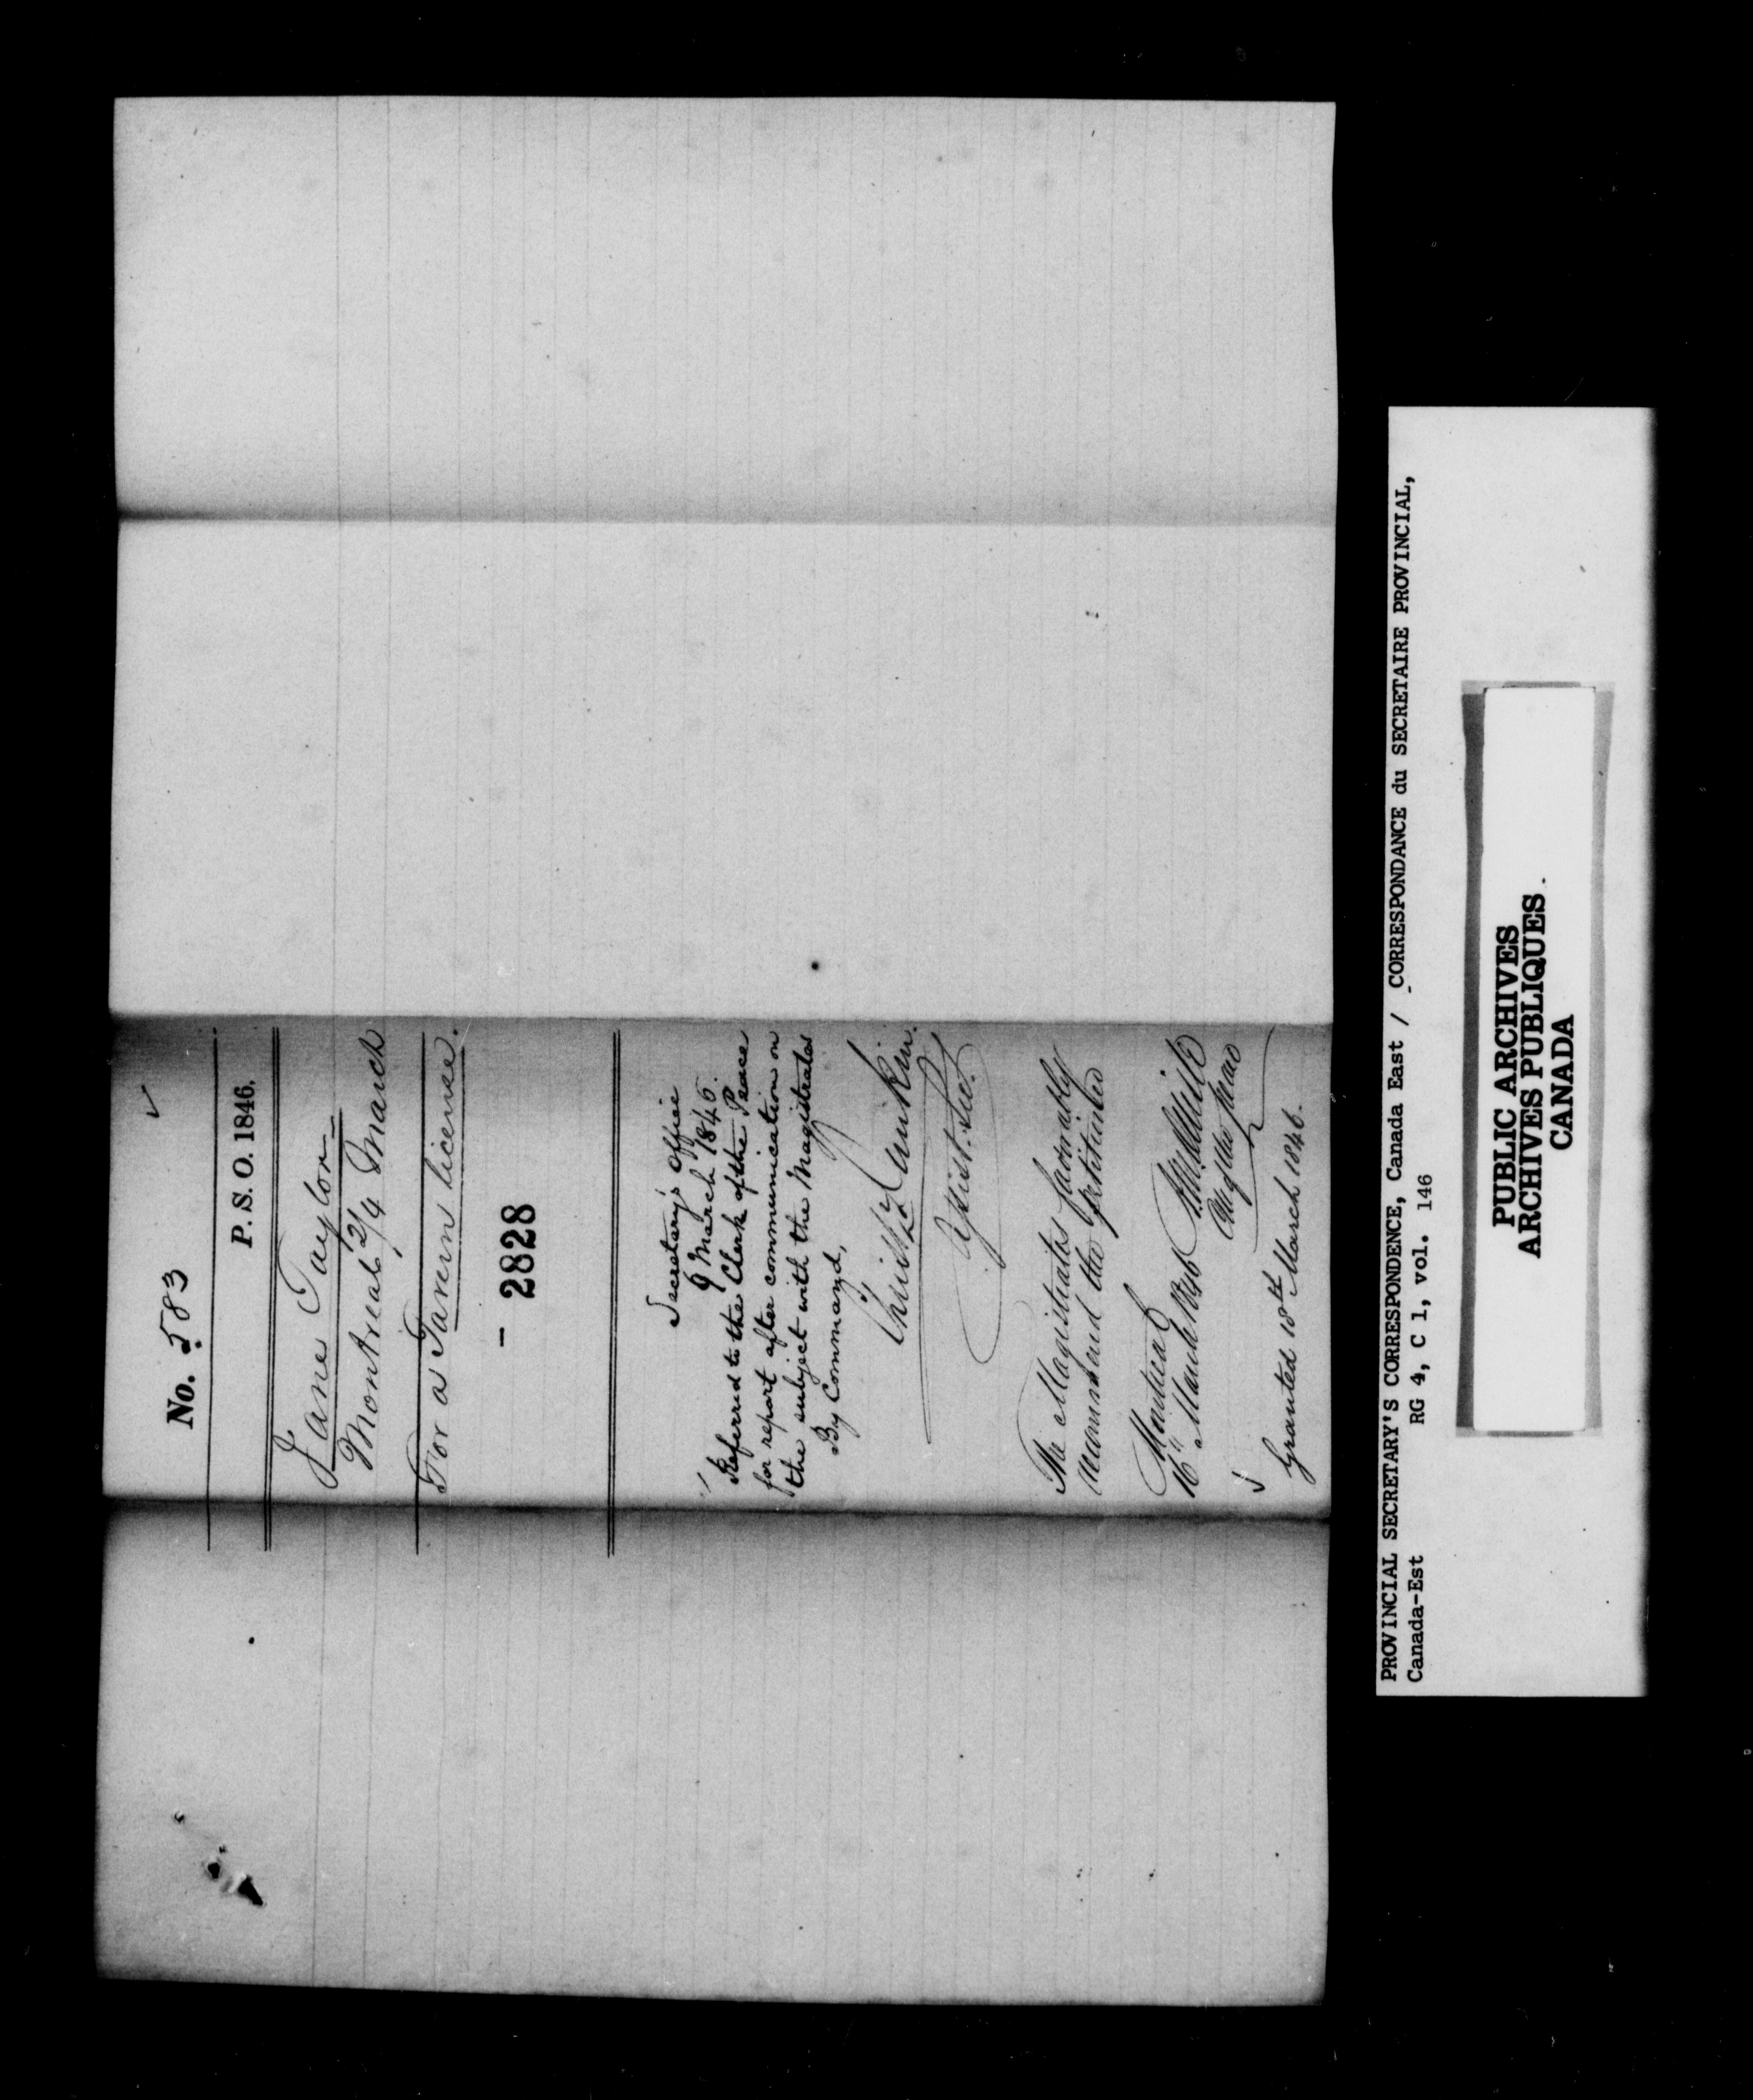 No. 583
P. S. O. 1846.
Jane Taylor
Montreal 2/4 March
For a Tavern license.
- 2828
Secretary's Office
9 March 1846.
Referred to the Clerk of the Peace
for report after communication on
the subject with the Magistrates
By Command,
Dunkin
Assist. Sec.
The Magistrates favorably
recommend the petitioner
Montreal
16th March 1846
Granted 18th March 1846.
PROVINCIAL SECRETARY'S CORRESPONDENCE, Canada East / CORRESPONDANCE du SECRETAIRE PROVINCIAL,
Canada-Est RG 4, C 1, vol. 146
PUBLIC ARCHIVES
ARCHIVES PUBLIQUES
CANADA